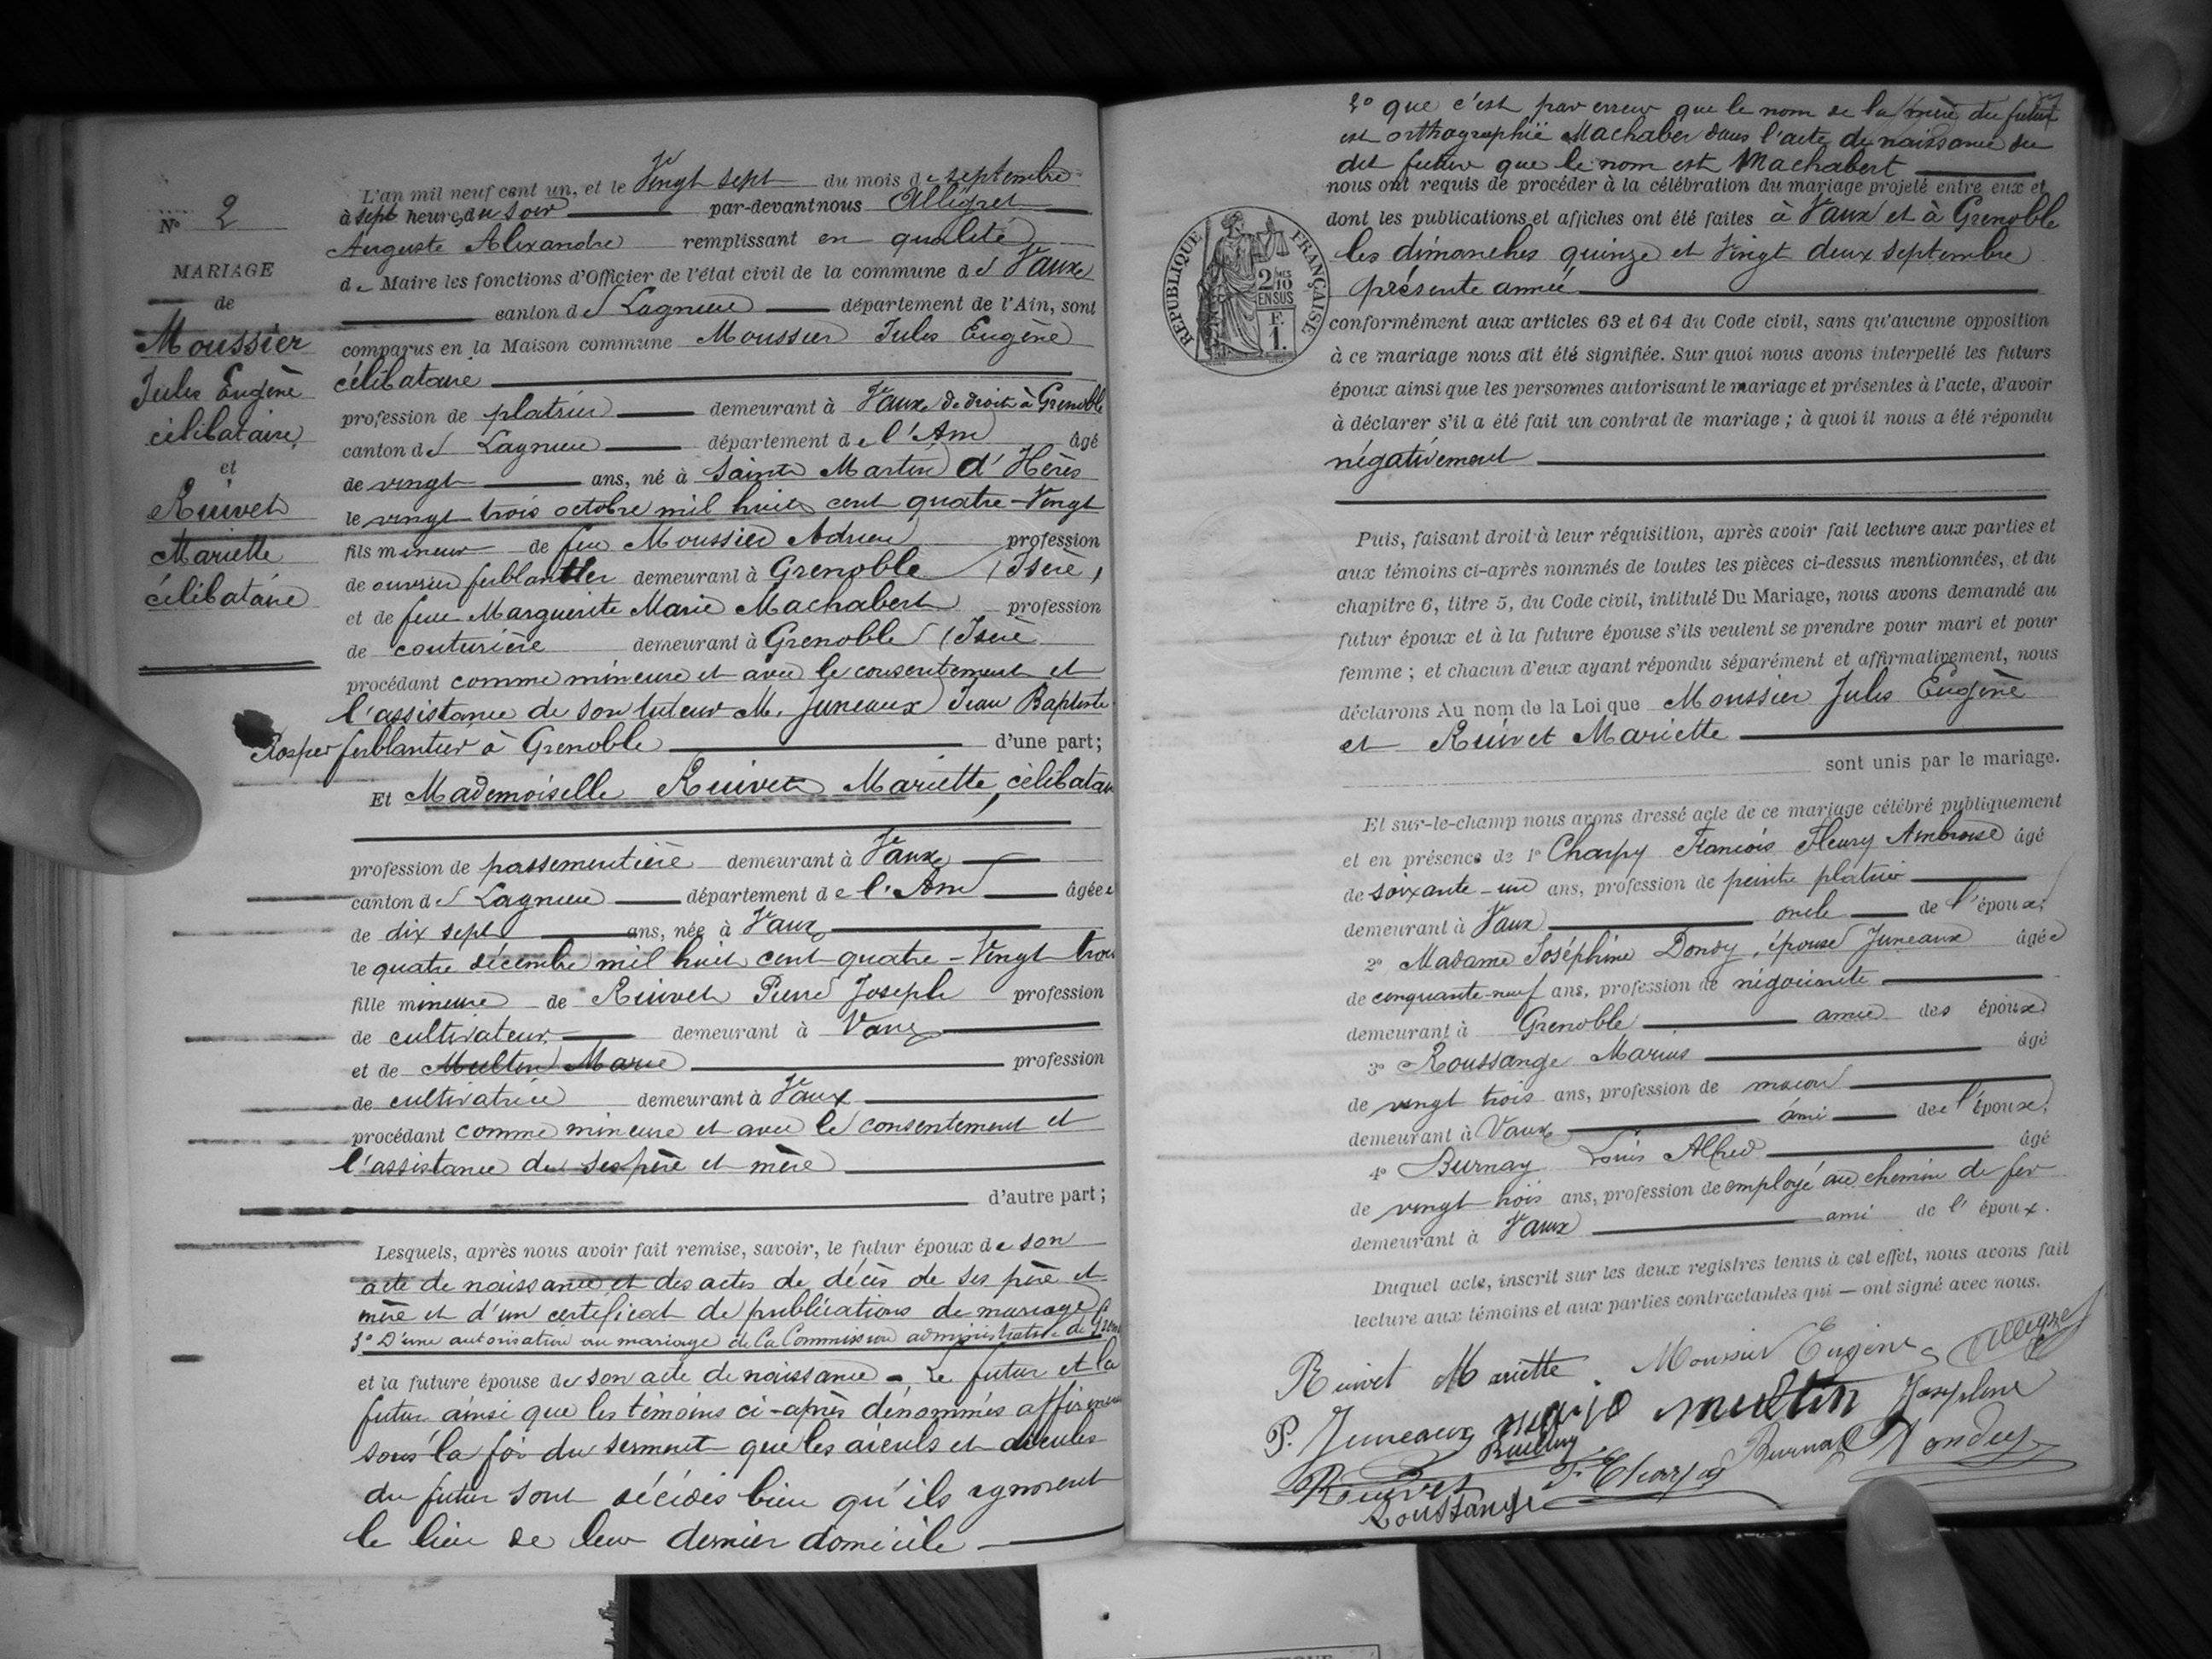 L'an mil neuf cent un, et le Vingt sept du mois de septembre
à sept heures du soir par-devant nous Allégret
Auguste Alexandre remplissant en qualité
de Maire les fonctions d'Officier de l'état civil de la commune de Vaux
canton de Lagnieu département de l'Ain, sont
comparus en la Maison commune Moussier Jules Eugène
célibataire
profession de platrier demeurant à Vaux & de droit à Grenoble
canton de Lagnieu département de l'Ain âgé
de vingt ans, né à Saint Martin d'Hères
le vingt trois octobre mil huit cent quatre-Vingt
fils mineur de feu Moussier Adrien profession
de ouvrier ferblantier demeurant à Grenoble (Isère)
et de feue Marguerite Marie Machabert profession
de couturière demeurant à Grenoble (Isère
procédant comme mineure et avec le consentement et
l'assistance de son tuteur M. Juneaux Jean Baptiste
Rosper ferblantier à Grenoble d'une part;
Et Mademoiselle Ruivet Mariette, célibataire
profession de passementière demeurant à Vaux
canton de Lagnieu département de l'Ain âgée
de dix sept ans, née à Vaux
le quatre décembre mil huit cent quatre-Vingt trois
fille mineure de Ruivet Pierre Joseph profession
de cultivateur demeurant à Vaux
et de Multin Marie profession
de cultivatrice demeurant à Vaux
procédant comme mineure et avec le consentement et
l'assistance de ses père et mère
d'autre part;
Lesquels, après nous avoir fait remise, savoir, le futur époux de son
acte de naissance et des actes de décès de ses père et
mère et d'un certificat de publications de mariage
3° D'une autorisation au mariage de la Commission administrative de
et la future épouse de son acte de naissance - Le futur et la
futur ainsi que les témoins ci-après dénommés affirment
sous la foi du serment que les aïeuls et aïeules
du futur sont décédés bien qu'ils ignorent
le lieu de leur dernier domicile
N° 2
MARIAGE
de
Moussier
Jules Eugène
célibataire
et
Ruivet
Mariette
célibataire
2° que c'est par erreur que le nom de la mère du futur
est orthographié Machaber dans l'acte de naissance du
dit futur que le nom est Machabert
nous ont requis de procéder à la célébration du mariage projeté entre eux et
dont les publications et affiches ont été faites à Vaux et à Grenoble
les dimanches quinze et Vingt deux septembre
présente année
conformément aux articles 63 et 64 du Code civil, sans qu'aucune opposition
à ce mariage nous ait été signifiée. Sur quoi nous avons interpellé les futurs
époux ainsi que les personnes autorisant le mariage et présentes à l'acte, d'avoir
à déclarer s'il a été fait un contrat de mariage ; à quoi il nous a été répondu
négativement
RÉPUBLIQUE FRANÇAISE
2/10MES
EN SUS
F.
1.
Puis, faisant droit à leur réquisition, après avoir fait lecture aux parties et
aux témoins ci-après nommés de toutes les pièces ci-dessus mentionnées, et du
chapitre 6, titre 5, du Code civil, intitulé Du Mariage, nous avons demandé au
futur époux et à la future épouse s'ils veulent se prendre pour mari et pour
femme ; et chacun d'eux ayant répondu séparément et affirmativement, nous
déclarons Au nom de la Loi que Moussier Jules Eugène
et Ruivet Mariette
sont unis par le mariage.
Et sur-le-champ nous avons dressé acte de ce mariage célébré publiquement
et en présence de 1° Charpy François Fleury Ambroise âgé
de soixante-un ans, profession de peintre platrier
demeurant à Vaux oncle de l'époux,
2° Madame Joséphine Dondy, épouse Juneaux âgée
de cinquante-neuf ans, profession de négociante
demeurant à Grenoble amie des époux
3° Roussange Marius âgé
de vingt trois ans, profession de maçon
demeurant à Vaux ami de l'épouse,
4° Burnay Louis Alfred âgé
de vingt trois ans, profession de employé au chemin de fer
demeurant à Vaux ami de l'époux.
Duquel acte, inscrit sur les deux registres tenus à cet effet, nous avons fait
lecture aux témoins et aux parties contractantes qui — ont signé avec nous.
Ruivet Mariette Moussier Eugène Allégret
P. Juneaux marie multin Josephine
Ruivet F. Charpy Burnay Dondey
Roussange